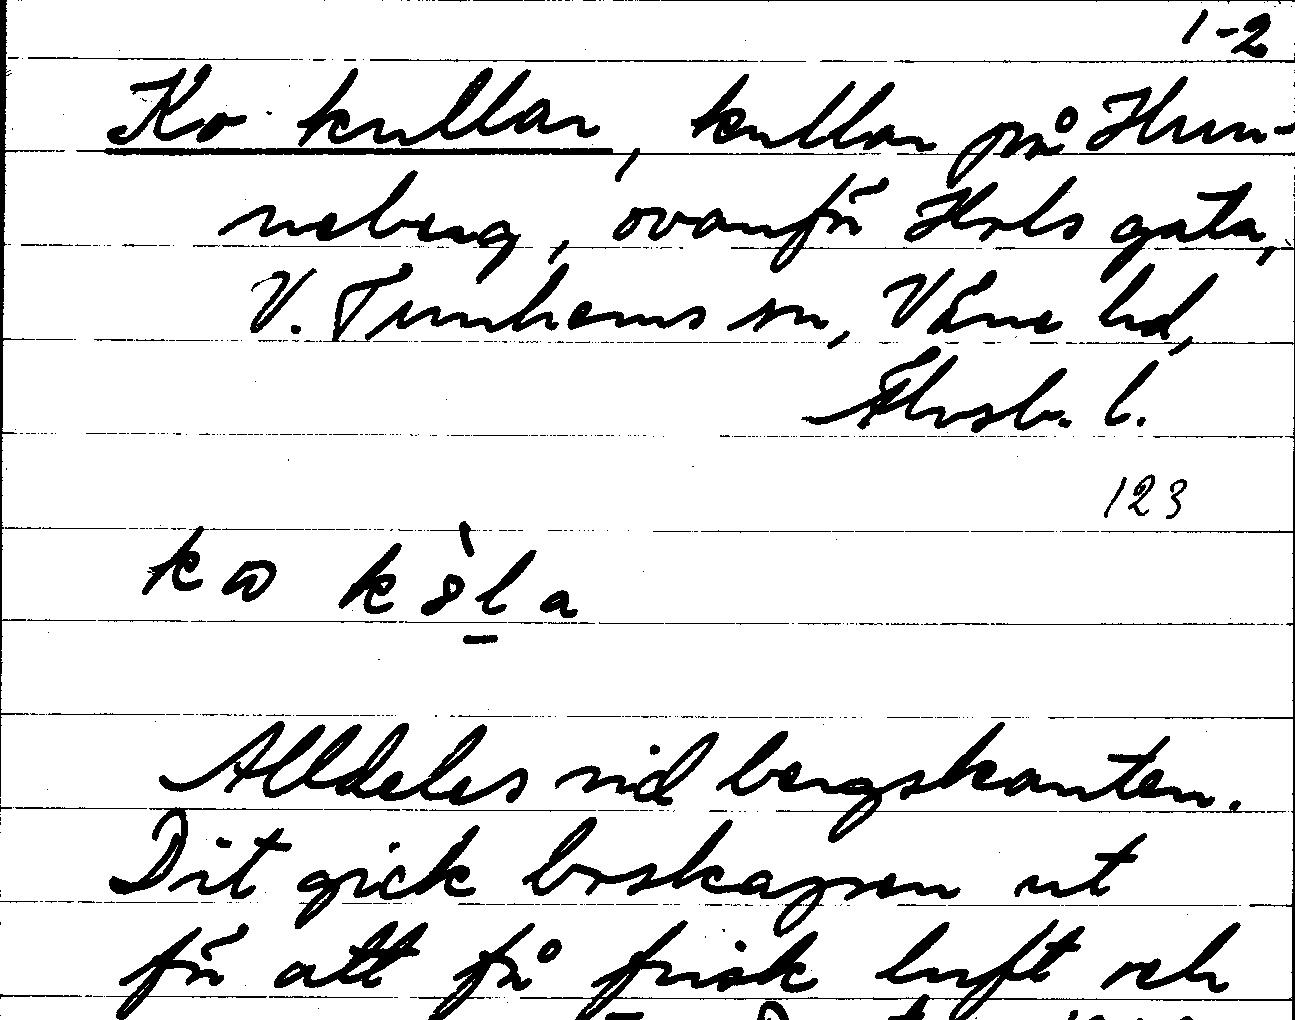 1-2
Ko kullar, kullar på Hun-
neberg, ovanför Hols gata,
V. Tunhems sn, Väne hd,
Älvsb. l.
123
kɷ kȣ̀l̠a
Alldeles vid bergskanten.
Dit gick boskapen ut
för att få frisk luft och